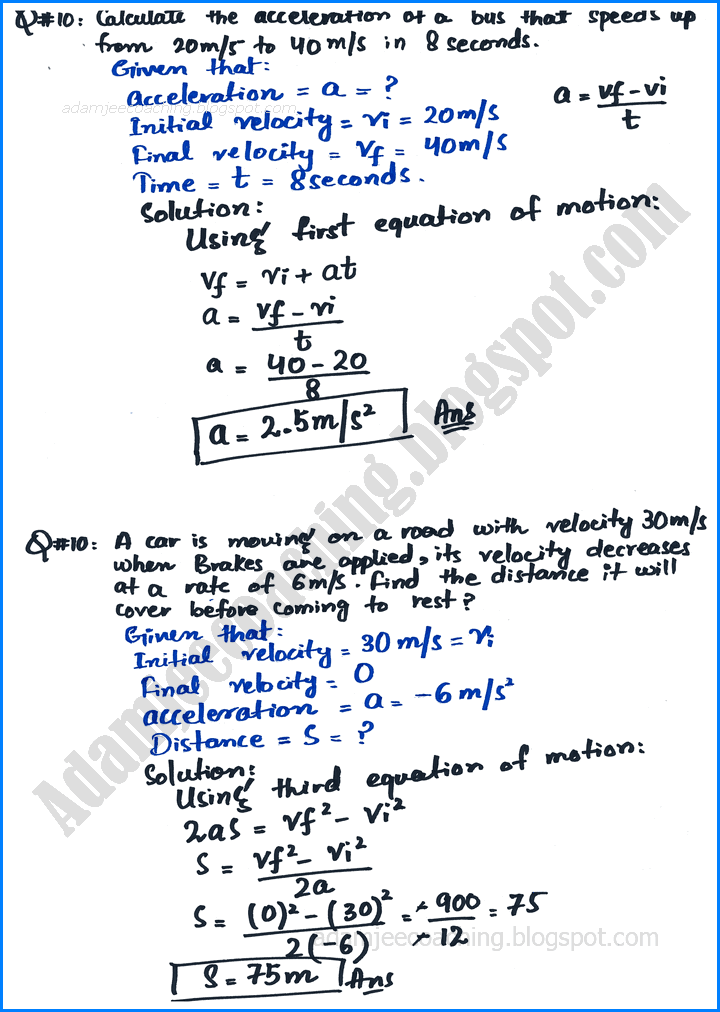 Q#10: Calculate the acceleration of a bus that speeds up
from 20m/s to 40m/s in 8 seconds.
Given that:
acceleration = a = ?
adamjeecoaching.blogspot.com
a = vf - vi / t
Initial velocity = vi = 20m/s
Final velocity = Vf = 40m/s
Time = t = 8seconds.
Solution:
Using first equation of motion:
Vf = vi + at
a = vf - vi / t
a = 40 - 20 / 8
a = 2.5m/s²   Ans
Q#10: A car is moving on a road with velocity 30m/s
when Brakes are applied, its velocity decreases
at a rate of 6m/s. find the distance it will
cover before coming to rest?
Given that:
Initial velocity = 30 m/s = vi
final velocity = 0
acceleration = a = -6 m/s²
Distance = S = ?
Solution:
Using third equation of motion:
2aS = vf² - vi²
S = vf² - vi² / 2a
S = (0)² - (30)² / 2(-6) = -900 / -12 = 75
adamjeecoaching.blogspot.com
S = 75m   Ans
Adamjeecoaching.blogspot.com